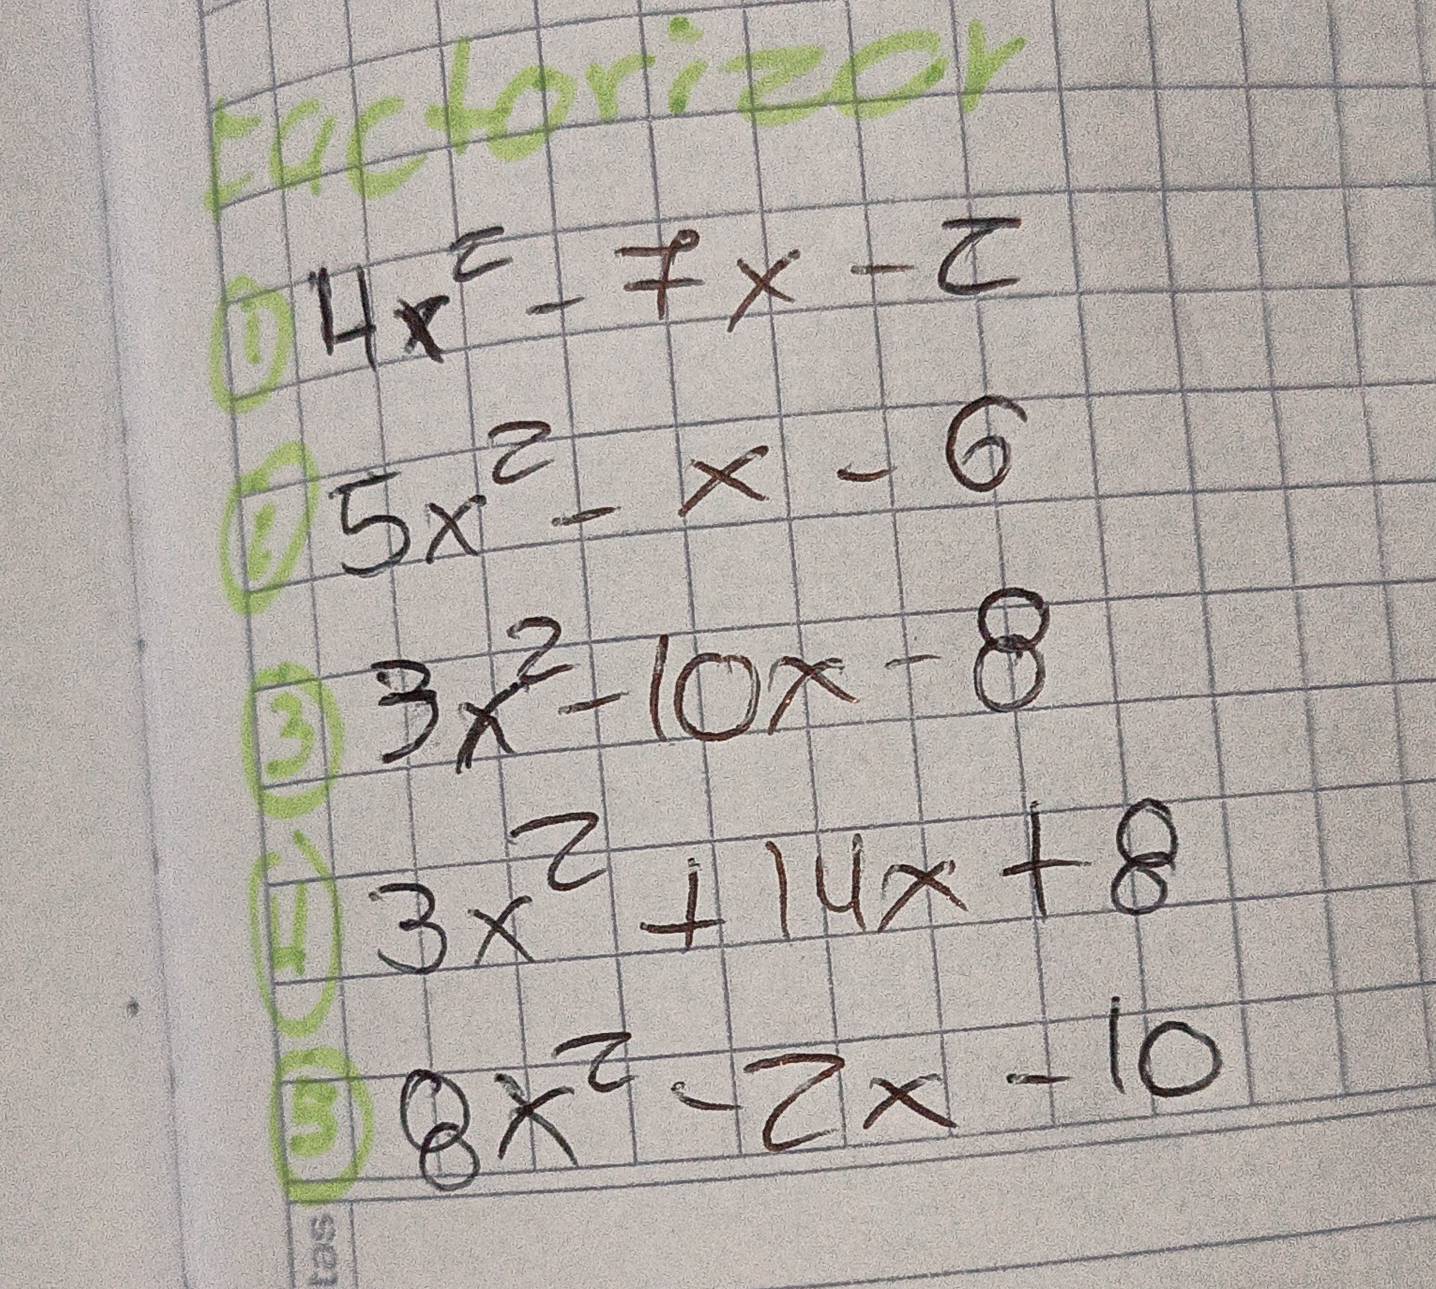 Factorizar
① 4x² - 7x - 2
② 5x² - x - 6
③ 3x² - 10x - 8
④ 3x² + 14x + 8
⑤ 8x² - 2x - 10
tas